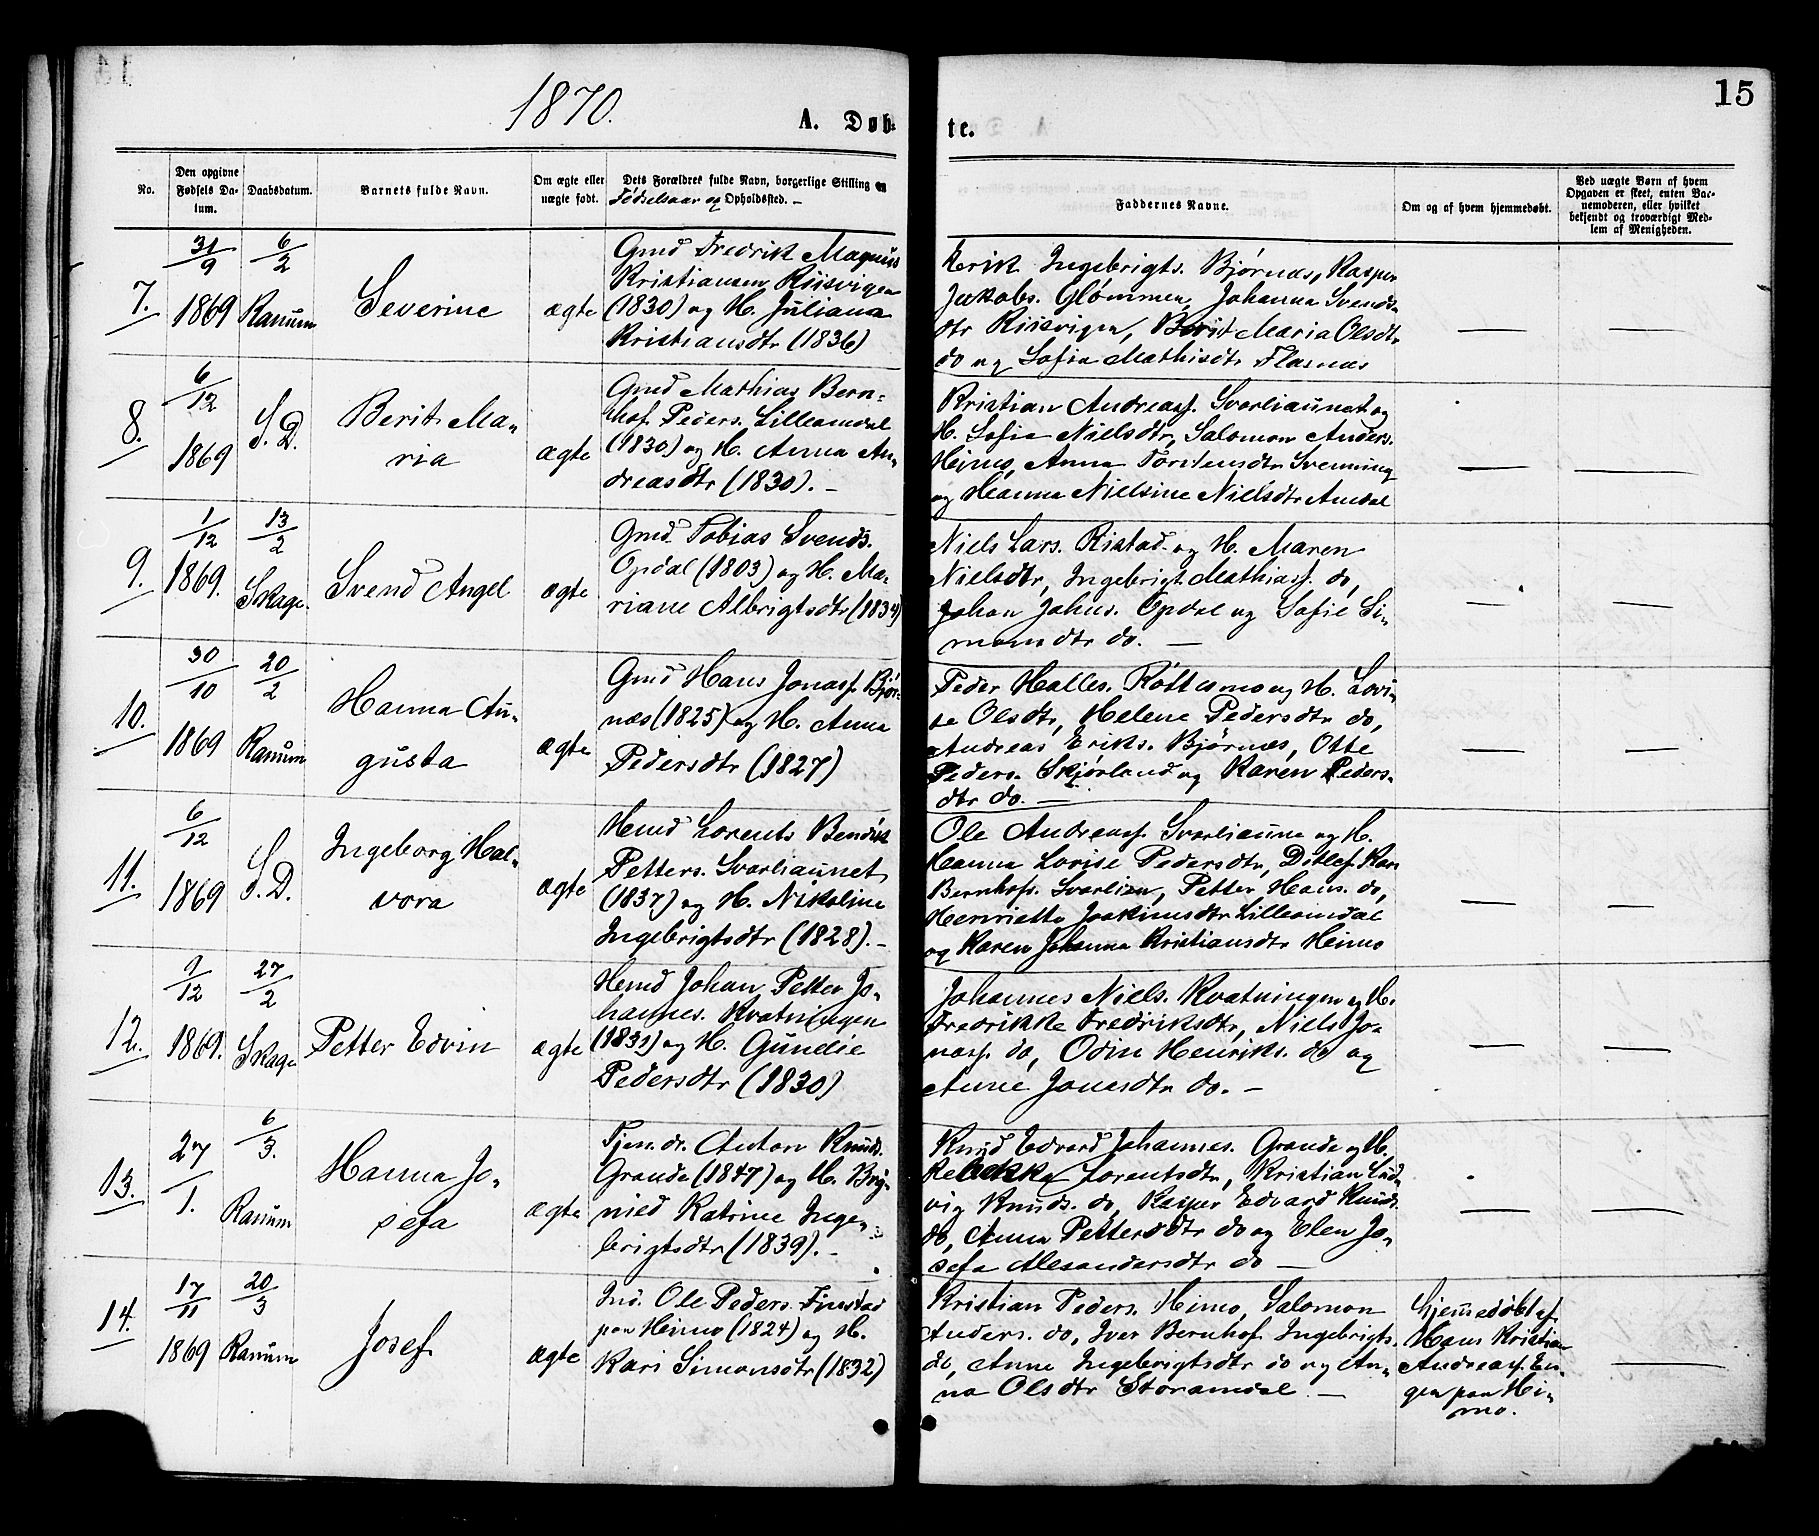 1870.
15
A. Døb-
te.
No.
Den opgivne
Fødsels Da-
tum.
Daabsdatum.
Barnets fulde Navn.
Om ægte eller
uægte født.
Dets Forældres fulde Navn, borgerlige Stilling og
Fødselsaar og Opholdssted. –
Faddernes Navne.
Om og af hvem hjemmedøbt.
Ved uægte Børn af hvem
Opgaven er skeet, enten Bar-
nemoderen, eller hvilket
bekjendt og troværdigt Med-
lem af Menigheden.
7.
31/9
1869
6/2
Ranum
Severine
ægte
Gmd Fredrik Magnus
Kristiansen Riisvigen
(1830) og H. Juliana
Kristiansdtr (1836)
Erik Ingebrigts. Bjørnes, Kasper
Jakobs. Glømmen, Johanna Svends-
dtr Riisvigen, Berit Maria Olsdtr
do og Sofia Mathisdtr Flasnes
8.
6/12
1869
6/2
S. D.
Berit Ma-
ria
ægte
Gmd Mathias Bern-
hof Peders. Lilleamdal
(1830) og H. Anna An-
dreasdtr (1830). –
Kristian Andreass. Svarliaunet og
H. Sofie Nielsdtr, Salomon Anders.
Heimo, Anna Torstensdtr Svenning
og Hanna Nielsine Nielsdtr Amdal
9.
1/12
1869.
13/2
Skage.
Svend Angel
ægte
Gmd. Tobias Svends.
Opdal (1803) og H. Ma-
riane Albrigtsdtr (1834)
Niels Lars. Ristad og H. Maren
Nielsdtr, Ingebrigt Mathiass. do,
Johan Johns. Opdal og Sofie Si-
monsdtr do. –
10.
30/10
1869
20/2
Ranum
Hanna Au-
gusta
ægte
Gmd Hans Jonass. Bjør-
nes (1825) og H. Anna
Pedersdtr (1827)
Peder Halles. Røttesmo og H. Lovi-
se Olsdtr, Helene Pedersdtr do,
Andreas Eriks. Bjørnes, Otte
Peders. Skjørland og Karen Peders-
dtr do. –
11.
6/12
1869
S. D.
Ingeborg Hal-
vora
ægte
Hmd Lorents Bendik
Petters. Svarliaunet
(1837) og H. Nikoline
Ingebrigtsdtr (1828). –
Ole Andreass. Svarliaune og H.
Hanna Lovise Pedersdtr, Ditlef Karl
Bernhofs. Svarlien, Petter Hans. do,
Henriette Joakimsdtr Lilleamdal
og Karen Johanna Kristiansdtr Heimo
12.
9/12
1869.
27/2
Skage
Petter Edvin
ægte
Hmd Johan Petter Jo-
hannes. Kvatningen
(1832) og H. Gundie
Pedersdtr (1830)
Johannes Niels. Kvatningen og H.
Fredrikke Fredriksdtr, Niels Jo-
nass. do, Odin Henriks. do og
Anne Jonasdtr do. –
13.
27/1.
6/3.
Ranum
Hanna Jo-
sefa
ægte
Tjen.dr. Anton Knuds.
Grande (1847) og H. Bry-
nied Katrine Inge-
brigtsdtr (1839). –
Knud Edvard Johannes. Grande og H.
Rebekka Lorentsdtr, Kristian Lud-
vig Knuds. do, Kasper Edvard Knuds.
do, Anna Pettersdtr do og Elen Jo-
sefa Alesandersdtr do –
14.
17/11
1869
20/3
Ranum
Josef.
ægte
Ind. Ole Peders. Finstad
paa Heimo (1824) og H.
Kari Simonsdtr (1832)
Kristian Peders. Heimo, Salomon
Anders. do, Iver Bernhof Ingebrigts.
do, Anne Ingebrigtsdtr do og An-
na Olsdtr Storamdal. –
Hjemmedøbt af
Hans Kristian
Andreass. En-
gen paa Hei-
mo.